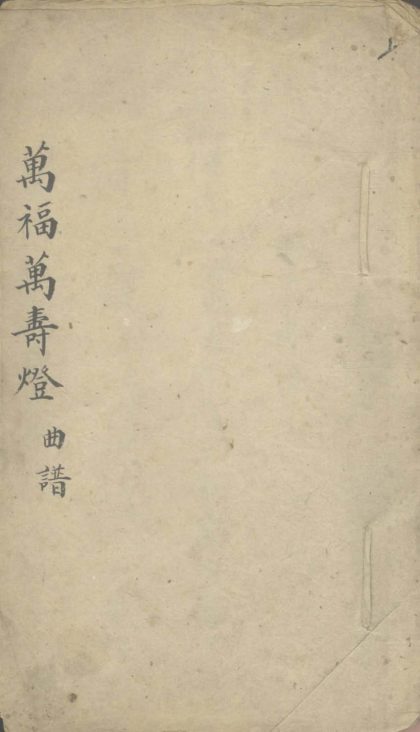 萬福萬壽燈 曲譜
上